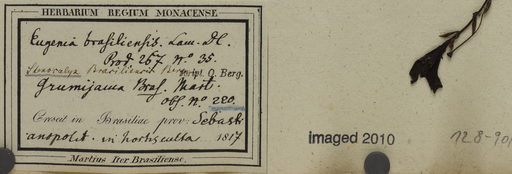 HERBARIUM REGIUM MONACENSE
Eugenia brasiliensis. Lam. DC.
Prod. 267. n.º 35.
Stenocalyx Brasiliensis Berg script. O. Berg.
Grumijama Bras. Mart.
obs. nº 220.
Crescit in Brasiliae prov: Sebast:
anopolit. in hort. culta 1817
Martius Iter Brasiliense.
imaged 2010
128-901